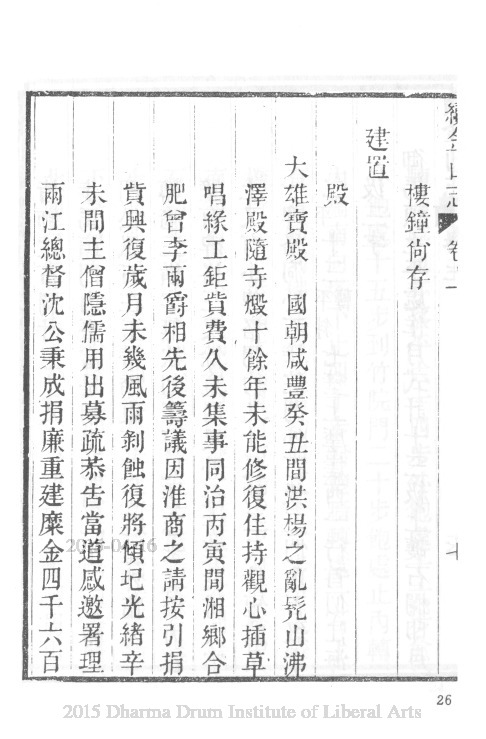 續金山志 卷上 七
樓鐘尙存
建置
殿
大雄寶殿 國朝咸豐癸丑間洪楊之亂髠山沸
澤殿隨寺燬十餘年未能修復住持觀心插草
唱緣工鉅貲費久未集事同治丙寅間湘鄉合
肥曾李兩爵相先後籌議因淮商之請按引捐
貲興復歲月未幾風雨剝蝕復將傾圮光緒辛
未間主僧隱儒用出募疏恭告當道感邀署理
兩江總督沈公秉成捐廉重建糜金四千六百
26
2015 Dharma Drum Institute of Liberal Arts